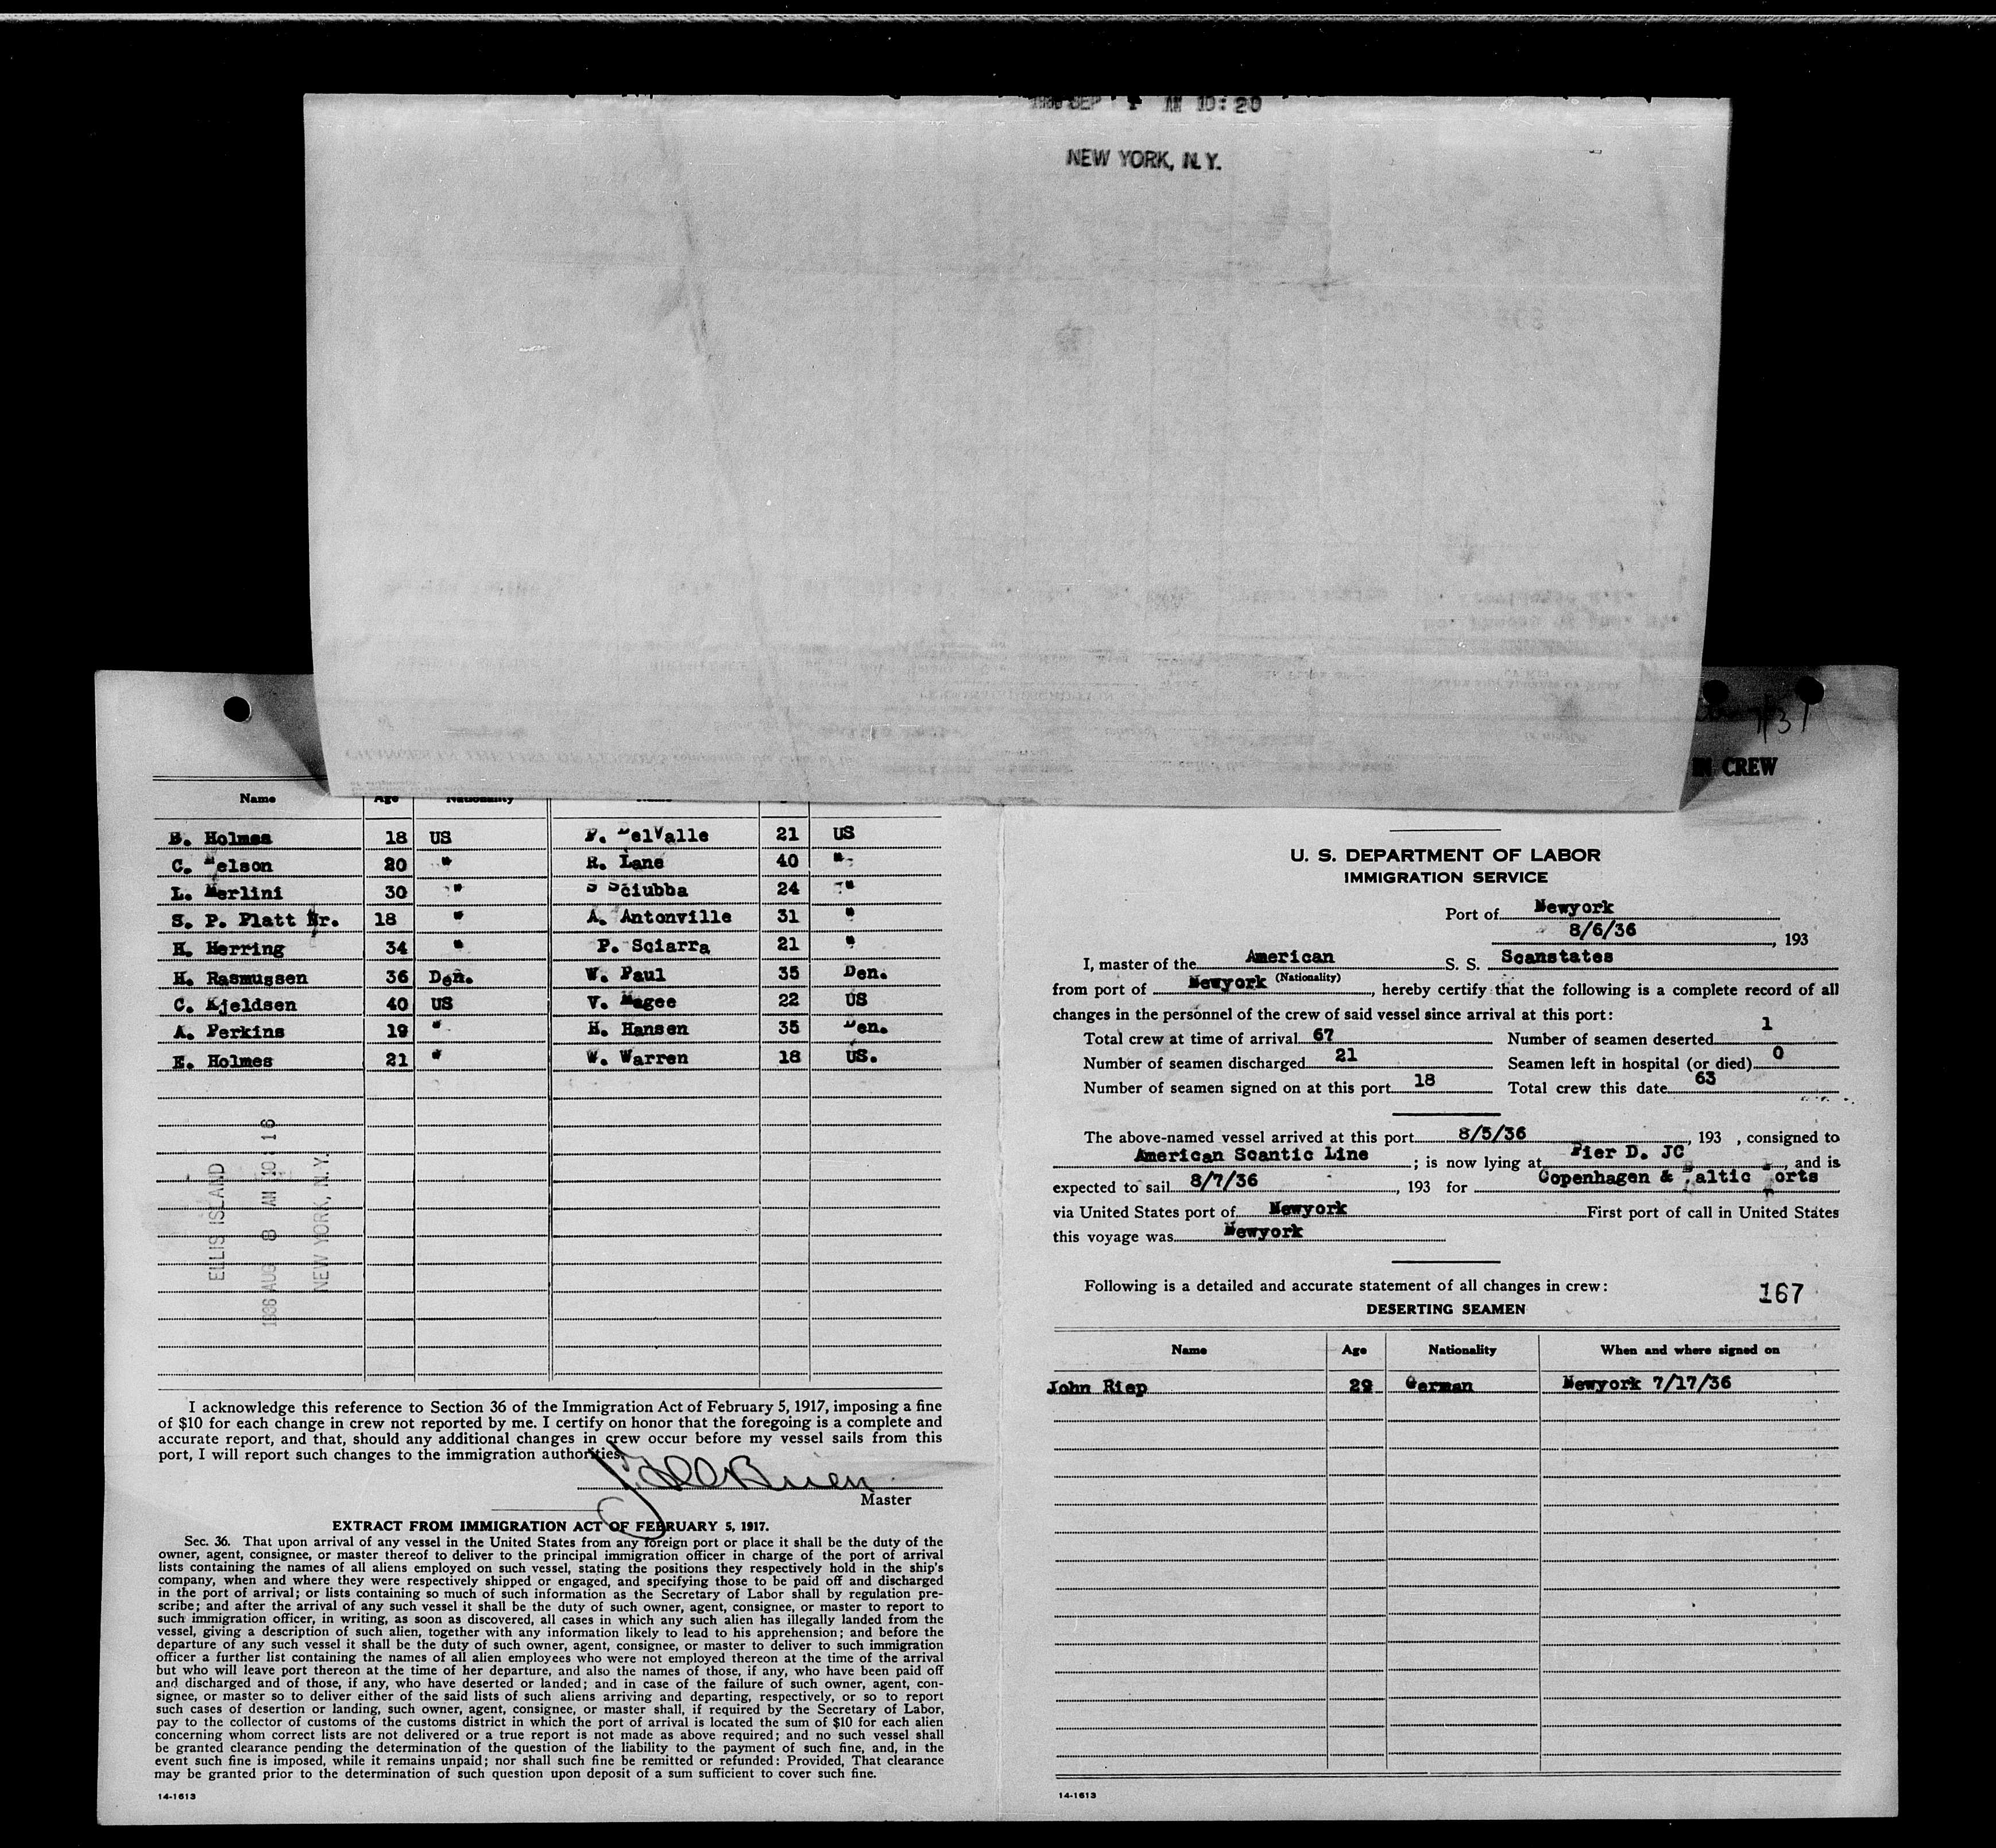 AM 10:20
NEW YORK, N.Y.
7/31
IN CREW
Name Age Nationality
B. Holmes 18 US
C. Nelson 20 "
L. Merlini 30 "
S. P. Platt Jr. 18 "
H. Herring 34 "
H. Rasmussen 36 Den.
C. Kjeldsen 40 US
A. Perkins 19 "
E. Holmes 21 "
F. DelValle 21 US
R. Lane 40 "
S Sciubba 24 "
A. Antonville 31 "
P. Sciarra 21 "
W. Paul 35 Den.
V. Magee 22 US
H. Hansen 35 Den.
W. Warren 18 US.
ELLIS ISLAND
1936 AUG 8 AM 10:16
NEW YORK, N.Y.
I acknowledge this reference to Section 36 of the Immigration Act of February 5, 1917, imposing a fine
of $10 for each change in crew not reported by me. I certify on honor that the foregoing is a complete and
accurate report, and that, should any additional changes in crew occur before my vessel sails from this
port, I will report such changes to the immigration authorities.
Master
EXTRACT FROM IMMIGRATION ACT OF FEBRUARY 5, 1917.
Sec. 36. That upon arrival of any vessel in the United States from any foreign port or place it shall be the duty of the
owner, agent, consignee, or master thereof to deliver to the principal immigration officer in charge of the port of arrival
lists containing the names of all aliens employed on such vessel, stating the positions they respectively hold in the ship's
company, when and where they were respectively shipped or engaged, and specifying those to be paid off and discharged
in the port of arrival; or lists containing so much of such information as the Secretary of Labor shall by regulation pre-
scribe; and after the arrival of any such vessel it shall be the duty of such owner, agent, consignee, or master to report to
such immigration officer, in writing, as soon as discovered, all cases in which any such alien has illegally landed from the
vessel, giving a description of such alien, together with any information likely to lead to his apprehension; and before the
departure of any such vessel it shall be the duty of such owner, agent, consignee, or master to deliver to such immigration
officer a further list containing the names of all alien employees who were not employed thereon at the time of the arrival
but who will leave port thereon at the time of her departure, and also the names of those, if any, who have been paid off
and discharged and of those, if any, who have deserted or landed; and in case of the failure of such owner, agent, con-
signee, or master so to deliver either of the said lists of such aliens arriving and departing, respectively, or so to report
such cases of desertion or landing, such owner, agent, consignee, or master shall, if required by the Secretary of Labor,
pay to the collector of customs of the customs district in which the port of arrival is located the sum of $10 for each alien
concerning whom correct lists are not delivered or a true report is not made as above required; and no such vessel shall
be granted clearance pending the determination of the question of the liability to the payment of such fine, and, in the
event such fine is imposed, while it remains unpaid; nor shall such fine be remitted or refunded: Provided, That clearance
may be granted prior to the determination of such question upon deposit of a sum sufficient to cover such fine.
14-1613
U. S. DEPARTMENT OF LABOR
IMMIGRATION SERVICE
Port of Newyork
8/6/36, 193
I, master of the American S. S. Scanstates
(Nationality)
from port of Newyork, hereby certify that the following is a complete record of all
changes in the personnel of the crew of said vessel since arrival at this port:
Total crew at time of arrival 67 Number of seamen deserted 1
Number of seamen discharged 21 Seamen left in hospital (or died) 0
Number of seamen signed on at this port 18 Total crew this date 63
The above-named vessel arrived at this port 8/5/36, 193 , consigned to
American Scantic Line; is now lying at Pier D. JC, and is
expected to sail 8/7/36, 193 for Copenhagen & Baltic Ports
via United States port of Newyork First port of call in United States
this voyage was Newyork
Following is a detailed and accurate statement of all changes in crew:
167
DESERTING SEAMEN
Name Age Nationality When and where signed on
John Riep 29 German Newyork 7/17/36
14-1613